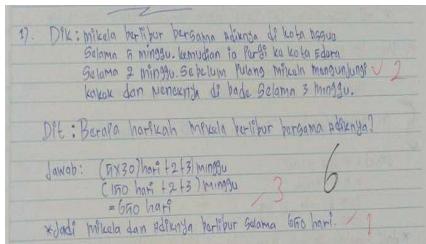 1). Dik: mikela berlibur bersama adiknya di kota
Selama 5 minggu. kemudian ia Pergi ke kota
Selama 2 minggu. Sebelum Pulang mikela mengunjungi 2
kakek dan neneknya di Selama 3 minggu.
Dit: Berapa harikah mikela berlibur bersama adiknya?
Jawab: (5x30) hari + 2 + 3) minggu
(150 hari + 2 + 3) minggu
= 650 hari 3 6
*Jadi mikela dan adiknya berlibur Selama 650 hari. 1